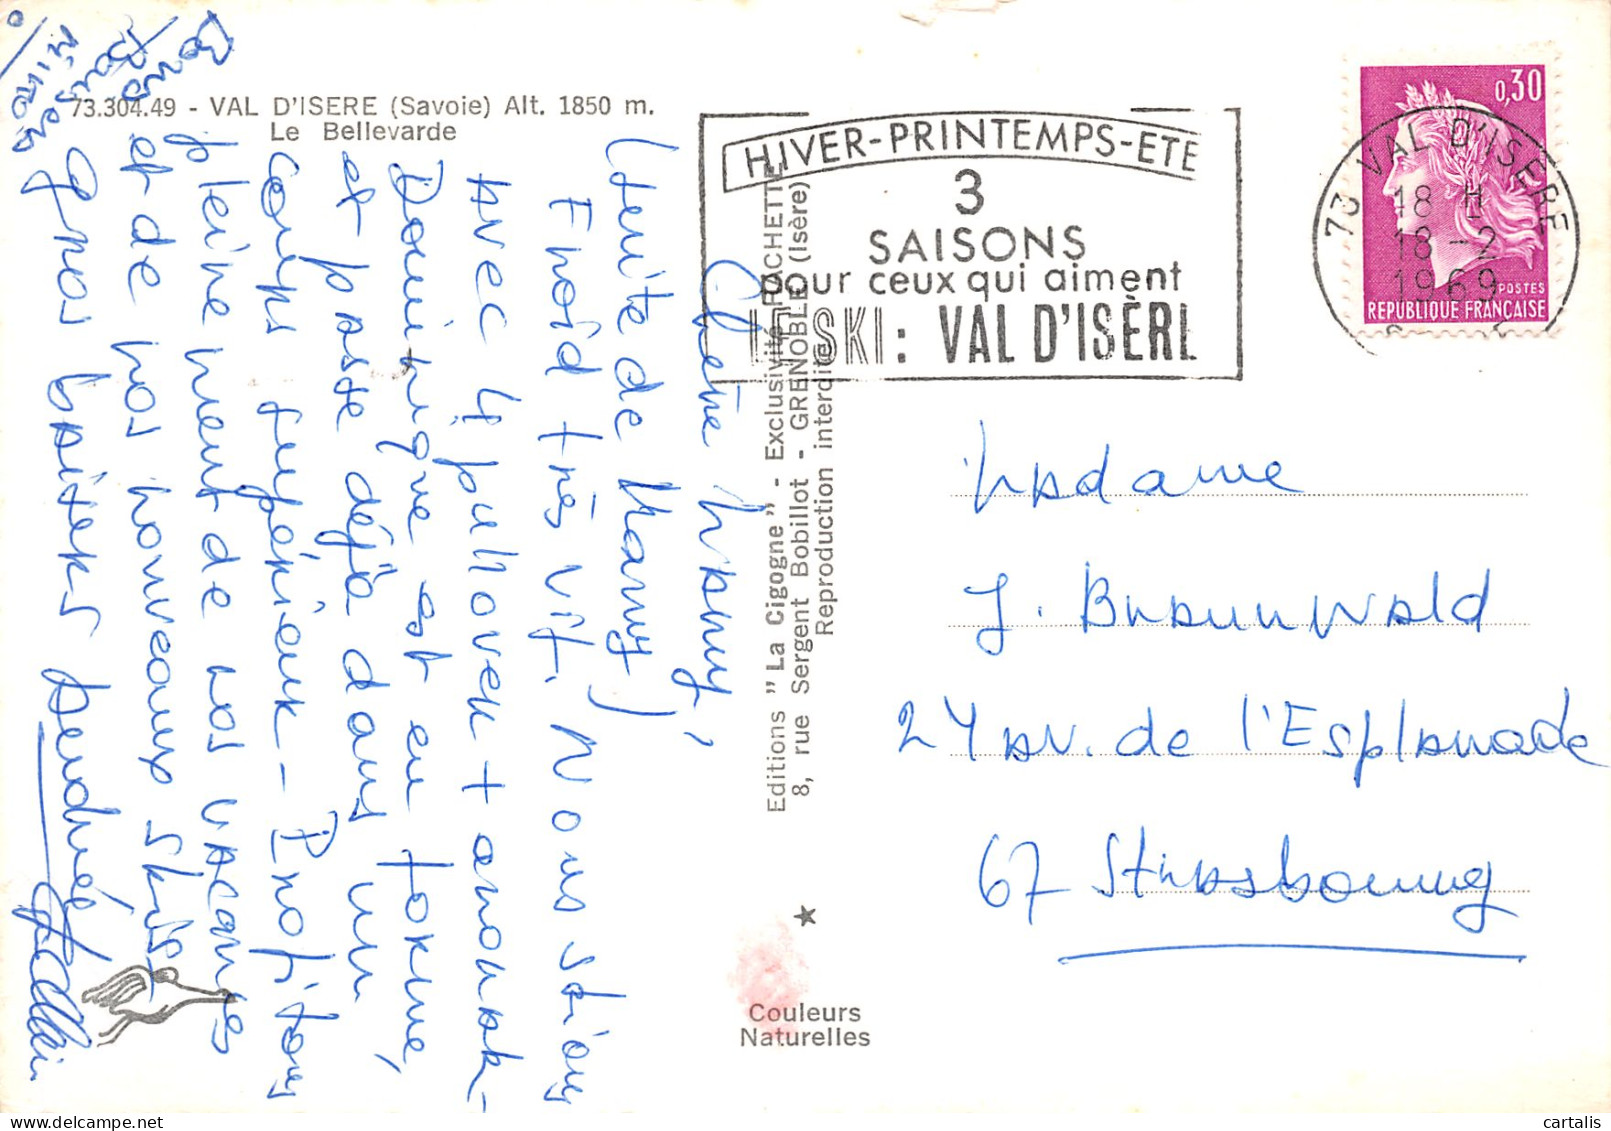 73.304.49 - VAL D'ISERE (Savoie) Alt. 1850 m.
Le Bellevarde
HIVER-PRINTEMPS-ETE
3
SAISONS
pour ceux qui aiment
LE SKI: VAL D'ISÈRE
0,30
POSTES
REPUBLIQUE FRANÇAISE
73 VAL D'ISERE
18 H
18 -2
1969
Chère Mamy,
(suite de Mamy)
Froid très vif. Nous skions
avec 4 pullover + anorak -
Dominique est en forme,
et passe déjà dans un
cours supérieur - Profitons
pleinement de nos vacances
et de nos nouveaux skis.
Gros baisers Andrée
Bons
Baisers
Editions "La Cigogne" - Exclusivité RACHETTE
8, rue Sergent Bobillot - GRENOBLE (Isère)
Reproduction interdite
Couleurs
Naturelles
Madame
J. Braunwald
24 av. de l'Esplanade
67 Strasbourg
cartalis